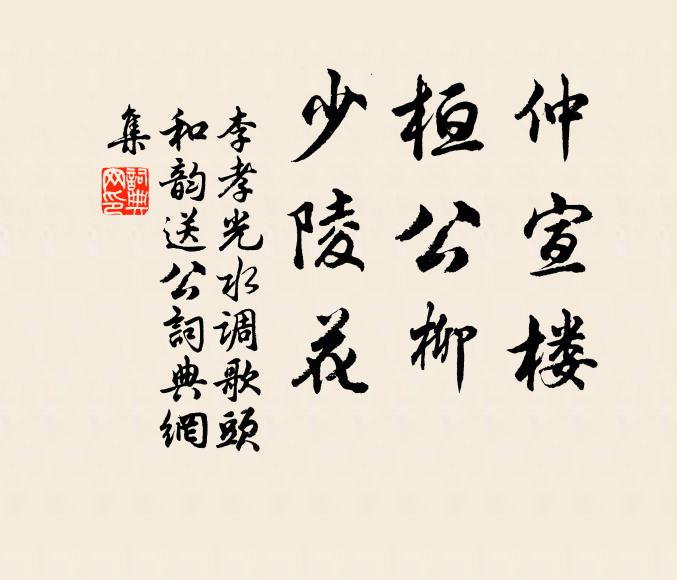 仲宣楼
桓公柳
少陵花
李孝光水调歌頭
和韵送公詞典網
集
詞典网印